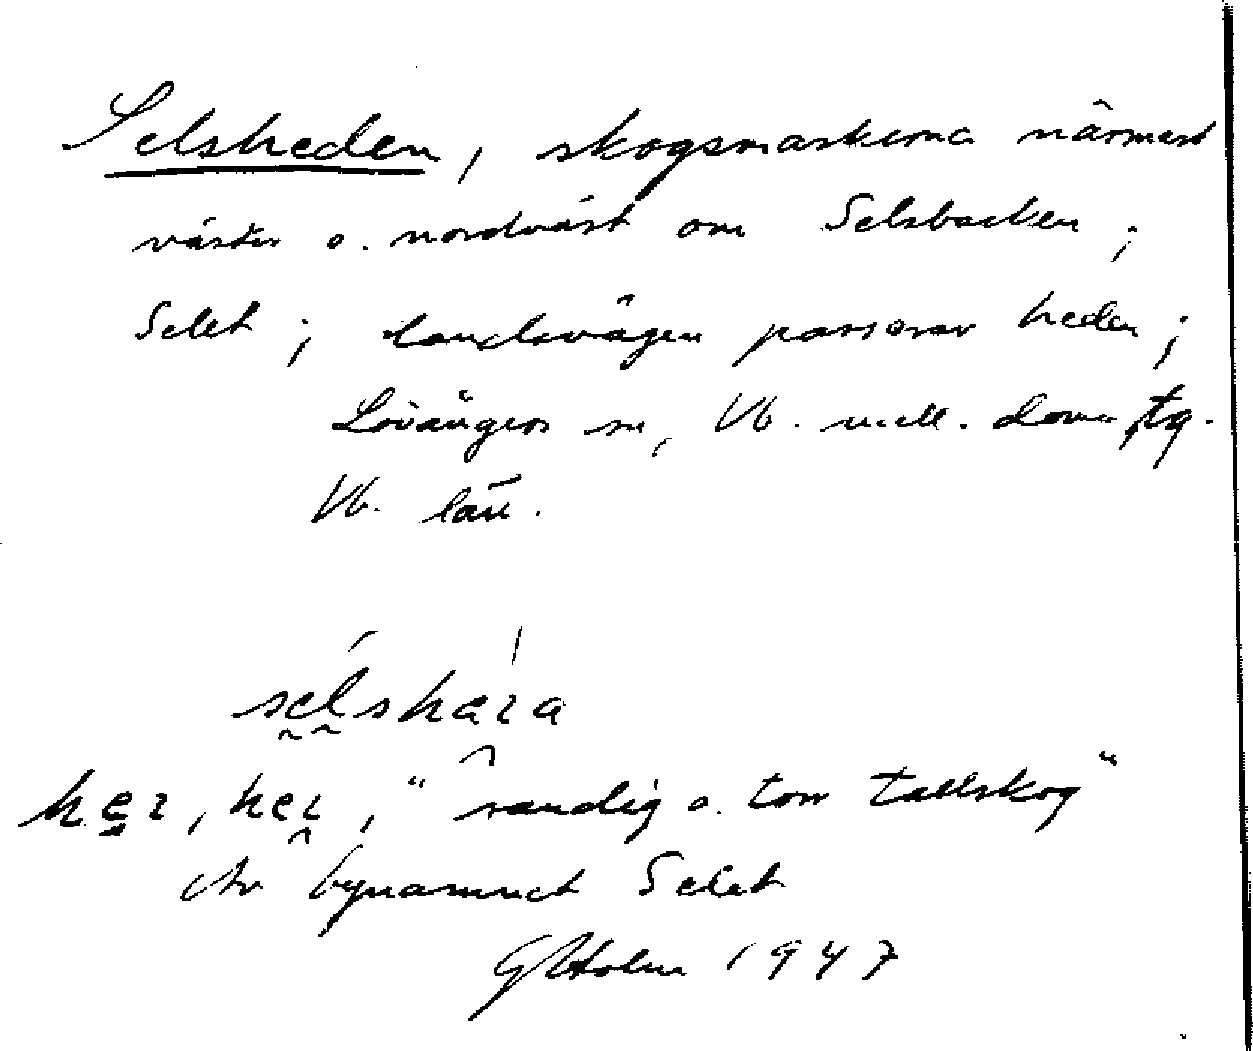 Selsheden, skogsmarkerna närmast
väster o. nordväst om Selsbacken;
Selet; landsvägen passerar heden;
Lövångers sn, Vb. mell. doms tg.
Vb. län.
selshara
"sandig o. torr tallskog"
Av bynamnet Selet
G Holm 1947